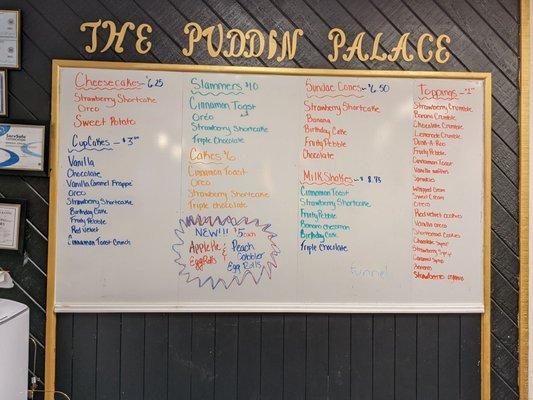 THE PUDDIN PALACE
Cheesecakes - $6.25
Strawberry Shortcake
Oreo
Sweet Potato
CupCakes - $3
Vanilla
Chocolate
Vanilla Caramel Frappe
Oreo
Strawberry Shortcake
Birthday Cake
Fruity Pebble
Red Velvet
Cinnamon Toast Crunch
Slammers $10
Cinnamon Toast
Oreo
Strawberry Shortcake
Triple Chocolate
Cakes $6
Cinnamon Toast
Oreo
Strawberry Shortcake
Triple chocolate
NEW!!! $5 each
Apple Pie
Egg Rolls
&
Peach
Cobbler
Egg Rolls
Sundae Cones - $6.50
Strawberry Shortcake
Banana
Birthday Cake
Fruity Pebble
Chocolate
MilkShakes - $8.75
Cinnamon Toast
Strawberry Shortcake
Fruity Pebble
Banana
Birthday Cake
Triple Chocolate
funnel
Toppings - $1
Strawberry Crumble
Banana Crumble
Chocolate Crumble
Lemonade Crumble
Fruity Pebble
Cinnamon Toast
Vanilla
Sprinkles
Whipped Cream
Sweet Cream
Oreo
Red velvet cookies
Vanilla oreo
Shortbread Cookies
Chocolate Syrup
Strawberry Syrup
Caramel Syrup
Banana